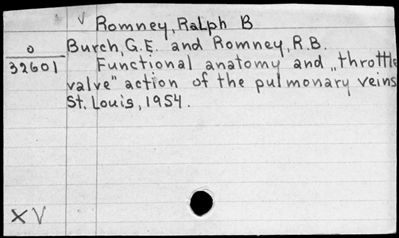 √ Romney, Ralph B
Burch, G.E. and Romney, R.B.
o
32601
Functional anatomy and „throttle
valve" action of the pulmonary veins
St. Louis, 1954.
XV